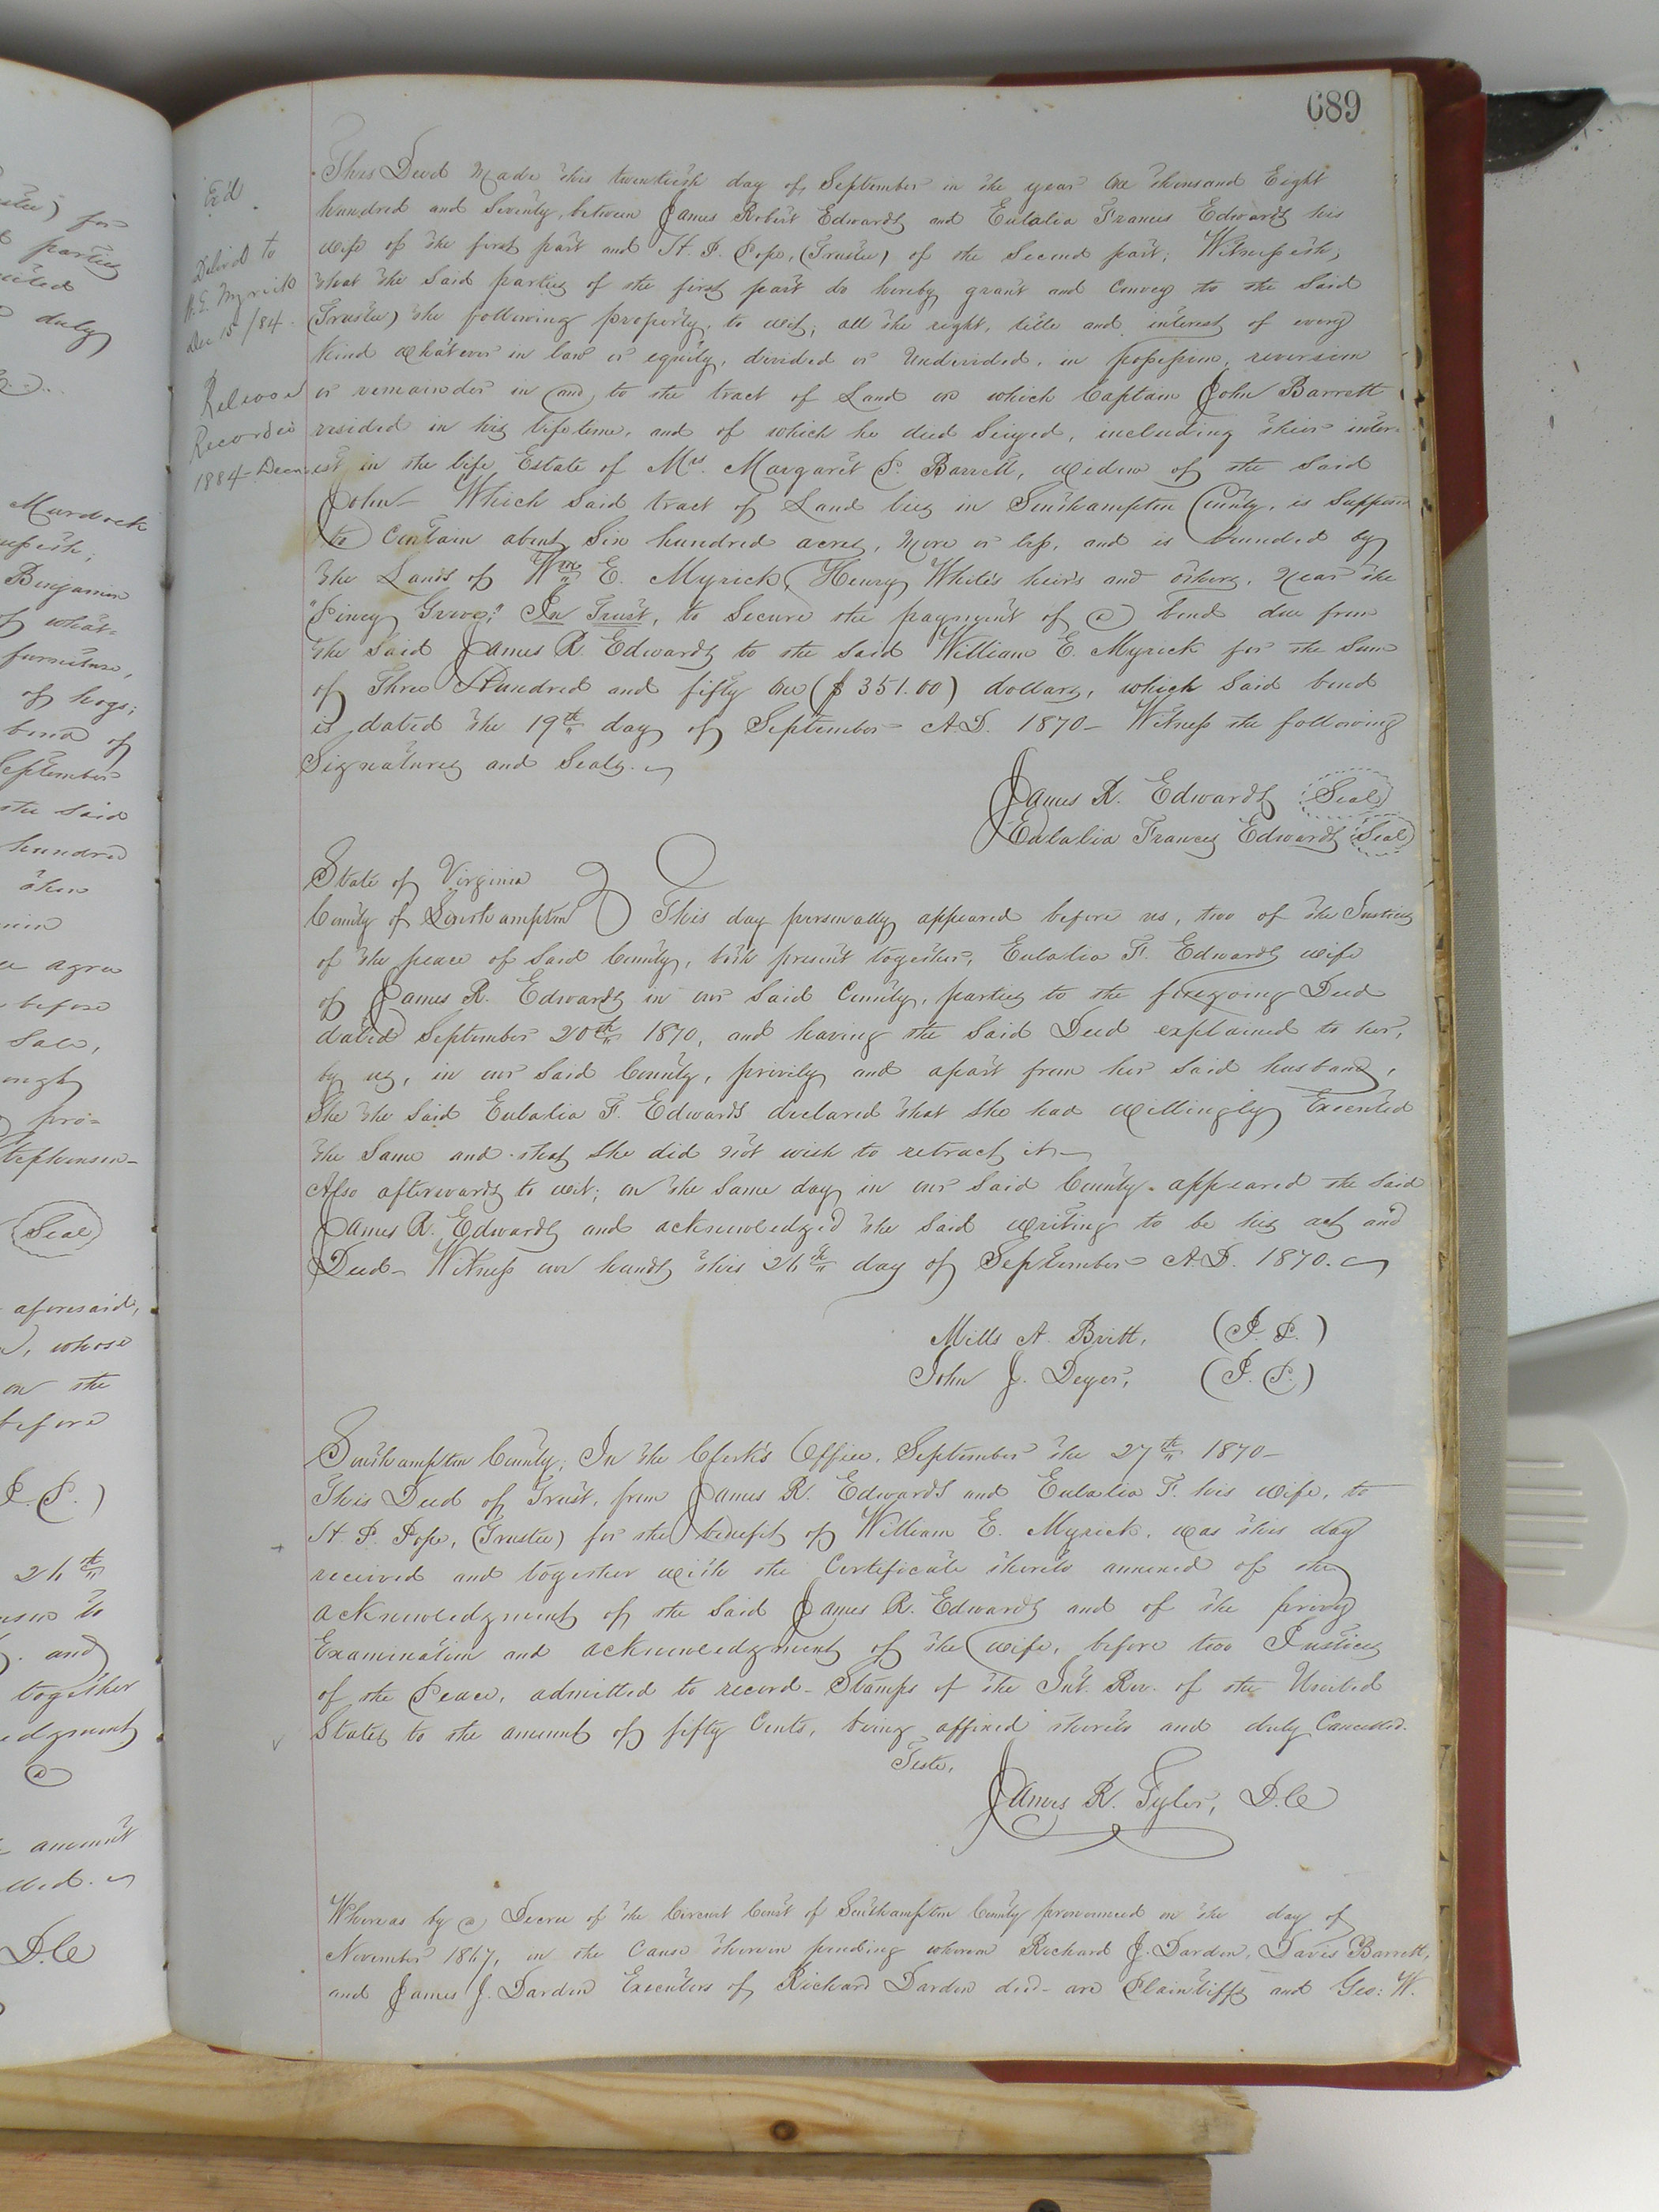 689
This Deed made this twentieth day of September in the year One thousand Eight
hundred and Seventy, between James Robert Edwards and Eulalia Frances Edwards his
wife of the first part and H. P. Pope, (Trustee) of the Second part; Witnesseth;
that the Said parties of the first part do hereby grant and Convey to the Said
(Trustee) the following property, to wit; all the right, title and interest of every
Kind whatever in law or equity, divided or Undivided, in possession, reversion
or remainder in and to the tract of Land on which Captain John Barrett
resided in his lifetime, and of which he died Seized, including their inter-
est in the life Estate of Mrs. Margaret P. Barrett, widow of the Said
John- Which Said tract of Land lies in Southampton County, is Suppose
to Contain about Six hundred acres, More or less, and is bounded by
the Lands of Wm E. Myrick, Henry White's heirs and others, Near the
"Piney Grove," In Trust, to Secure the payment of a bond due from
the Said James R. Edwards to the Said William E. Myrick for the Sum
of Three Hundred and fifty One ($351.00) dollars, which Said bond
is dated the 19th day of September A.D. 1870- Witness the following
Signatures and Seals.
James R. Edwards (Seal)
Eulalia Frances Edwards (Seal)
State of Virginia
County of Southampton This day personally appeared before us, two of the Justices
of the peace of Said County, both present together, Eulalia F. Edwards wife
of James R. Edwards in our Said County, parties to the foregoing Deed
dated September 20th 1870, and having the Said Deed explained to her,
by us, in our Said County, privily and apart from her Said husband,
She the Said Eulalia F. Edwards declared that She had willingly Executed
the Same and that She did not wish to retract it-
Also afterwards to wit; on the Same day in our Said County appeared the Said
James R. Edwards and acknowledged the Said writing to be his act and
Deed- Witness our hands this 26th day of September A.D. 1870.
Mills A. Britt, (J. P.)
John J. Deyer, (J. P.)
Southampton County; In the Clerk's Office, September the 27th 1870-
This Deed of Trust, from James R. Edwards and Eulalia F. his wife, to
H. P. Pope, (Trustee) for the benefit of William E. Myrick, was this day
received and together with the Certificate thereto annexed of the
acknowledgment of the Said James R. Edwards and of the privy
Examination and acknowledgment of the wife, before two Justices
of the Peace, admitted to record- Stamps of the Int. Rev. of the United
States to the amount of fifty Cents, being affixed thereto and duly Cancelled.
Teste,
James R. Tyler, D.C
Whereas by a Decree of the Circuit Court of Southampton County pronounced on the day of
November 1867, in the Cause therein pending wherein Richard J. Darden, Davis Barrett,
and James J. Darden Executors of Richard Darden decd- are Plaintiffs and Geo: W.
Ex'd
Delivd to
W. E. Myrick
Dec 15/84
Release
Recorded
1884-Decm
for
parties
duly
Murdock
Benjamin
of what-
furniture,
of hogs;
bond of
September
the said
hundred
agree
before
Sale,
pro=
Stephenson-
(Seal)
aforesaid,
whose
on the
before
J. P.)
26th
and
together
amount
D.C